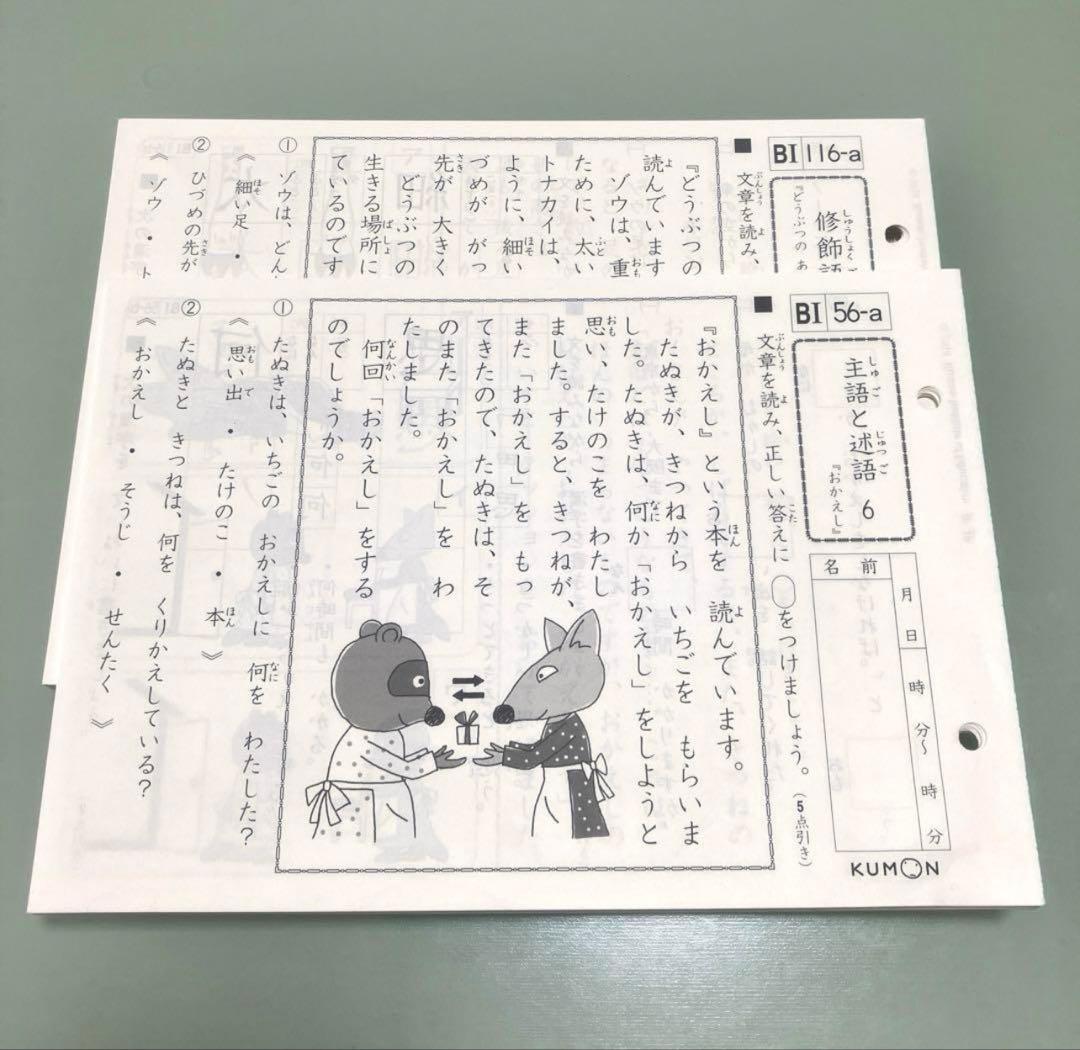 BI 116-a
修飾語
『どうぶつの あ
■ 文章を読み、
『どうぶつの
読んでいます
ゾウは、重
ために、太い
トナカイは、
ように、細い
づめが がっ
先が 大きく
どうぶつの
生きる場所に
ているのです
① ゾウは、どん
《 細い足 ・
② ひづめの先が
《 ゾウ ・ ト
BI 56-a
主語と述語 6
『おかえし』
月 日 時 分〜 時 分
名前
KUMON
■ 文章を読み、正しい答えに ◯をつけましょう。(5点引き)
『おかえし』という本を 読んでいます。
たぬきが、きつねから いちごを もらいま
した。たぬきは、何か「おかえし」をしようと
思い、たけのこを わたし
ました。すると、きつねが、
また「おかえし」を もっ
てきたので、たぬきは、そ
のまた「おかえし」を わ
たしました。
何回「おかえし」をする
のでしょうか。
① たぬきは、いちごの おかえしに 何を わたした?
《 思い出 ・ たけのこ ・ 本 》
② たぬきと きつねは、何を くりかえしている?
《 おかえし ・ そうじ ・ せんたく 》